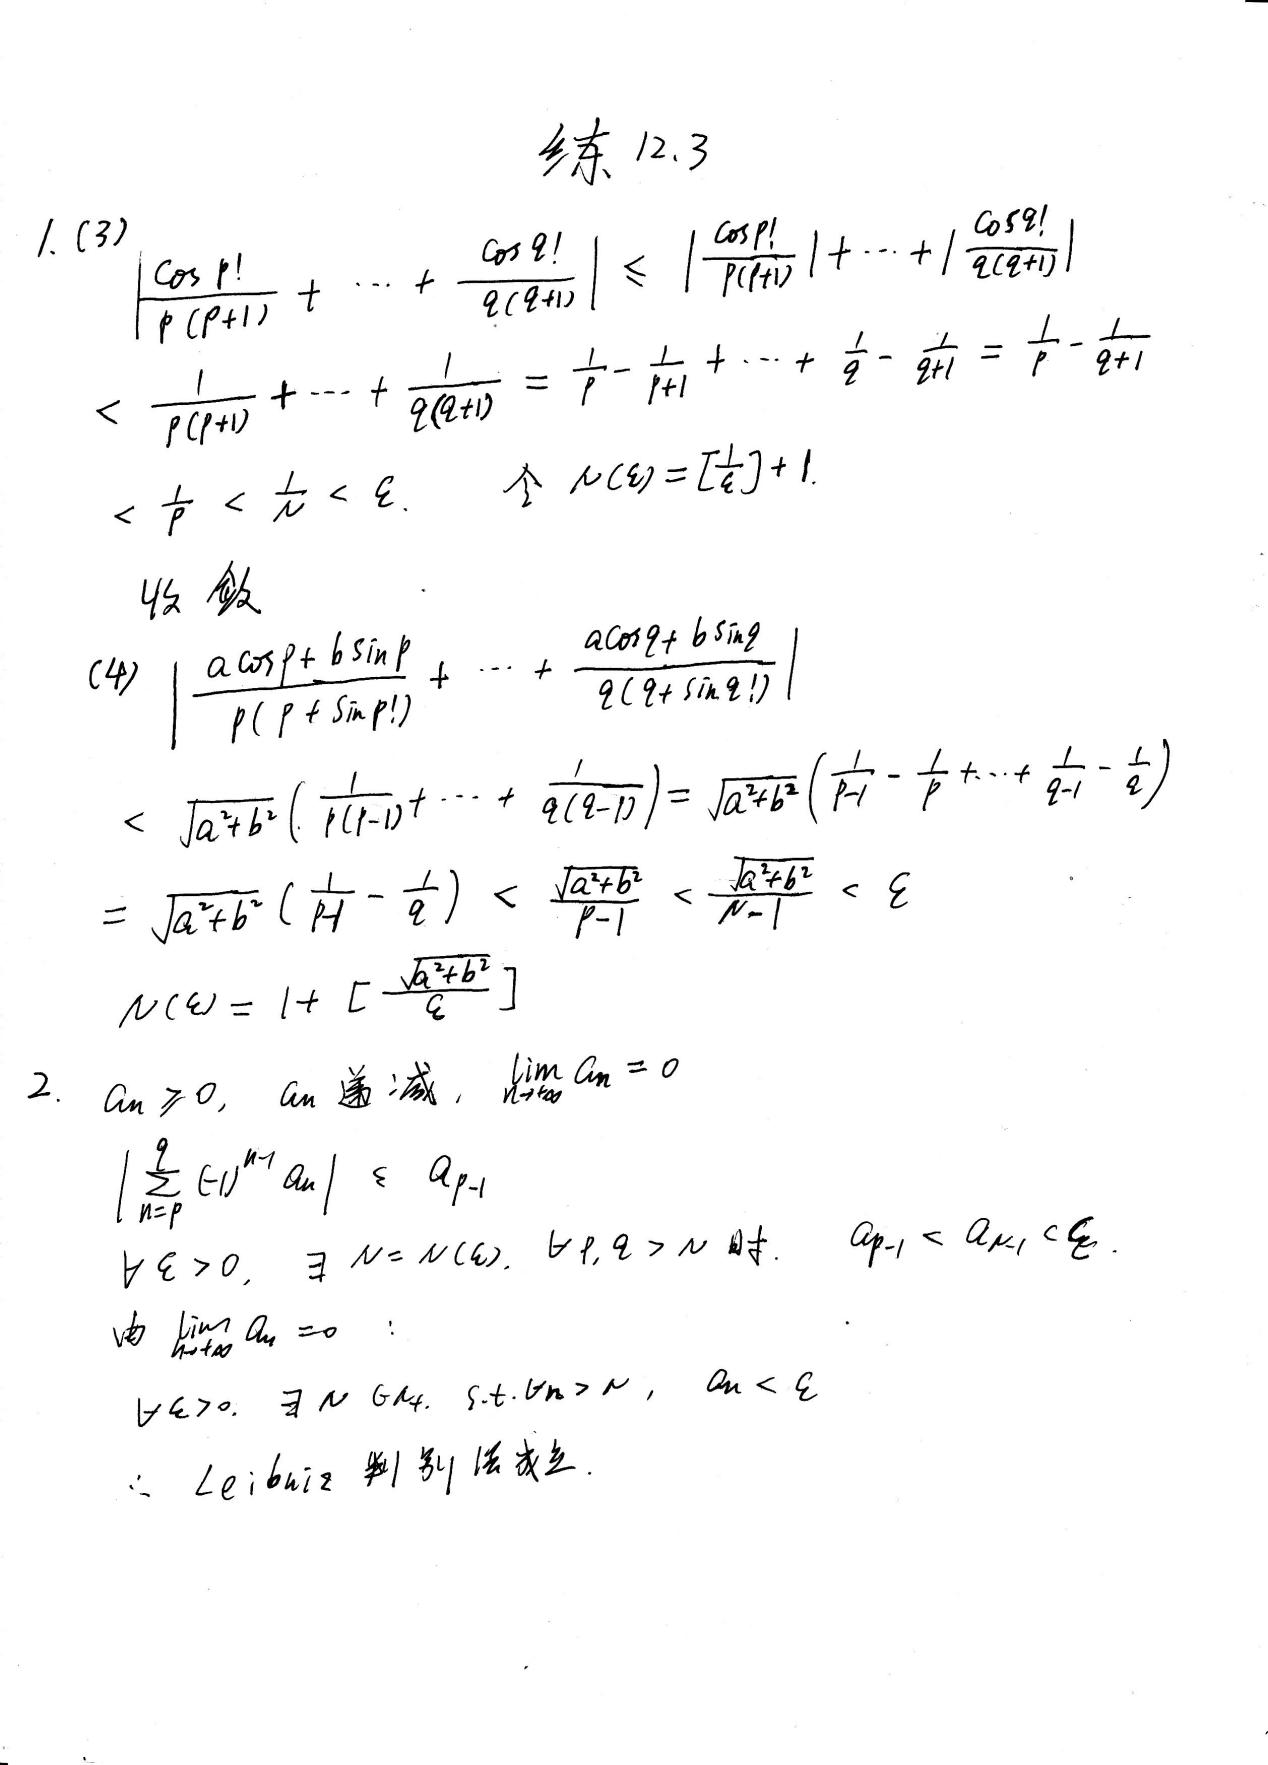 练 12.3
1. (3)
|cos p!/p(p+1) + ... + cos q!/q(q+1)| ≤ |cos p!/p(p+1)| + ... + |cos q!/q(q+1)|
< 1/p(p+1) + ... + 1/q(q+1) = 1/p - 1/p+1 + ... + 1/q - 1/q+1 = 1/p - 1/q+1
< 1/p < 1/N < ε. 令 N(ε) = [1/ε] + 1.
收敛
(4) |a cos p + b sin p/p(p + sin p!) + ... + a cos q + b sin q/q(q + sin q!)|
< √a²+b² (1/p(p-1) + ... + 1/q(q-1)) = √a²+b² (1/p-1 - 1/p + ... + 1/q-1 - 1/q)
= √a²+b² (1/p-1 - 1/q) < √a²+b²/p-1 < √a²+b²/N-1 < ε
N(ε) = 1 + [√a²+b²/ε]
2. an ≥ 0, an 递减, lim n→+∞ an = 0
|Σ n=p q (-1)^n-1 an| ≤ a p-1
∀ε>0, ∃ N=N(ε). ∀p,q>N 时. a p-1 < a N-1 < ε.
由 lim n→+∞ an =0 :
∀ε>0. ∃ N ∈N+. s.t. ∀n>N, an < ε
∴ Leibniz 判别法成立.